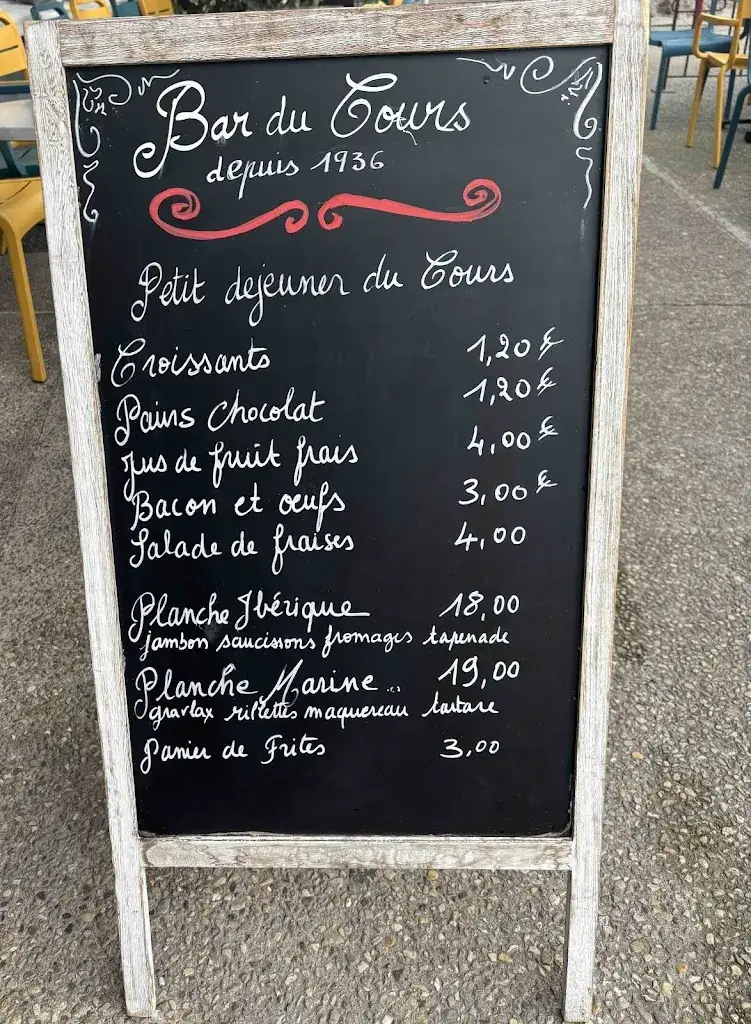 Bar du Cours
depuis 1936
Petit dejeuner du Cours
Croissants 1,20 €
Pains chocolat 1,20 €
Jus de fruit frais 4,00 €
Bacon et œufs 3,00 €
Salade de fraises 4,00
Planche Ibérique 18,00
jambon saucissons fromages tapenade
Planche Marine... 19,00
gravlax rillettes maquereau tartare
Panier de Frites 3,00